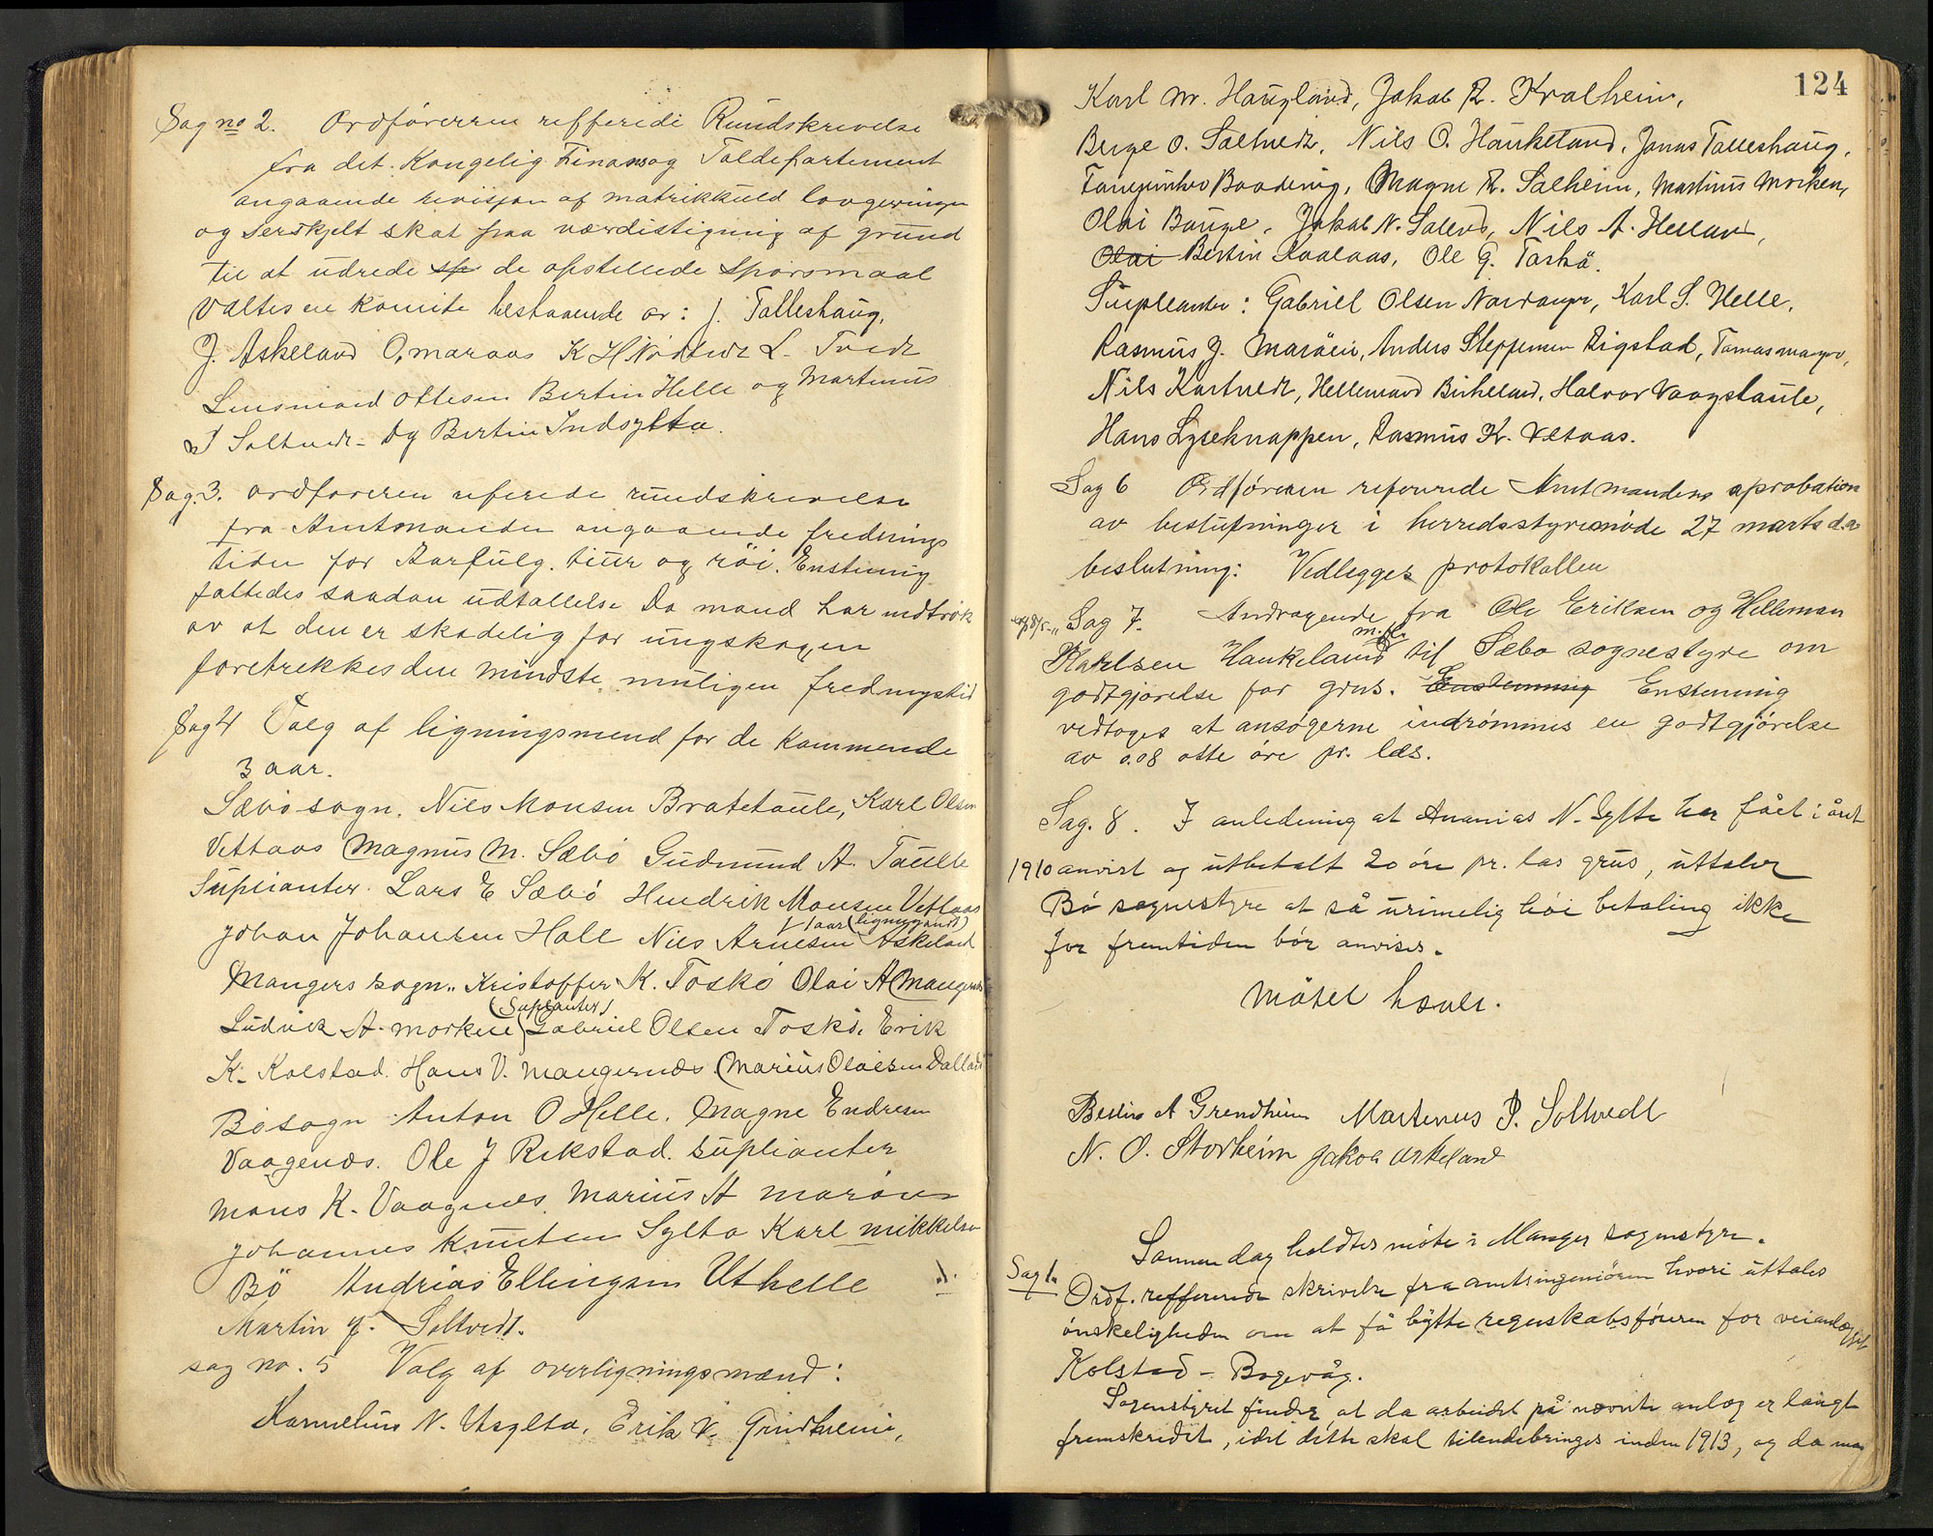 Sag no 2. Ordföreren refferede Rundskrivelse
fra det Kongelig Finans og Toldepartement
angaaende revisjon af matrikkuld lovgivningen
og Serskjelt skat paa værdistigning af grund
til at udrede sp de opstillede Spörsmaal
Valtes en komite bestaaende av: J. Talleshaug,
J. Askeland O, maraas K H L. Tvedt
Ottesen Bertin Helle og Martinus
P Soltvedt Og Bertin Indsylta.
Sag. 3. Ordföreren referede rundskrivelse
fra Amtmanden angaaende frednings
tiden for Aarfulg. tiur og röi. Enstemig
faltedes saadan udtallelse Da mand har indtryk
av at den er skadelig for ungskogen
foretrekkes den mindste muligen fredningstid
Sag 4 Valg af ligningsmend for de kommende
3 aar.
Sæbö sogn. Nils Monsen Bratetaule, Karl Olsen
Vettaas Magnus M. Sæbö Gudmund A. Taule
Suplianter. Lars E Sæbö Hendrik Monsen Vettaas
1 aar (ligningsandt)
Johan Johansen Hall Nils Arnesen Askeland
Mangers sogn.. Kristoffer K. Toskö Olai A Mangersnes
(Suplianter)
Ludvik A. morken Gabriel Olsen Toskö, Erik
K. Kolstad. Hans V. mangernæs Marius Olaisen Dalland
Bö sogn Anton O Helle. Magne Endresen
Vaagenæs. Ole J Rikstad. suplianter
mons K. Vaagenes Marius A maröen
Johannes Knutsen Sylta Karl mikkelsen
Bö Andrias Ellingsen Uthelle
Martin J. Soltvedt.
sag no. 5 Valg af overligningsmænd:
Kornelius N. Utsylta, Erik V. Grindheim,
124
Karl M. Haugland, Jakob R. Kvalheim,
Berge O. Soltvedt, Nils O. Haukeland, Jonas Talleshaug,
Boadering, Magne R. Salheim, Martinus Morken,
Olai Bauge, Jakob N. Sæbö, Nils A. Helland,
Olai Bertin Kaalaas, Ole G. Toskö.
Suplianter: Gabriel Olsen Nordanger, Karl S. Helle,
Rasmus J. Maröen, Anders Steffensen Rigstad, Tomas manger,
Nils Kartvedt, Hellemand Birkeland, Halvor Vaagstaule,
Hans Lyseknappen, Rasmus Kr. Vetaas.
Sag 6 Ordföreren refererede Amtmandens aprobation
av beslutninger i herredsstyremöde 27 marts d.a
beslutning: Vedlegges protokollen
Sag 7. Andragende fra Ole Eriksen og Helleman
m. fl.
Haukeland til Sæbo sognestyre om
godtgjörelse for grus. Enstemmig Enstemmig
vedtoges at ansögerne indrömmes en godtgjörelse
av 0.08 otte öre pr. læs.
Sag. 8. I anledning at Ananias N. Sylte har fået i året
1910 anvist og utbetalt 20 öre pr. las grus, uttaler
Bö sognestyre at så urimelig höi betaling ikke
for fremtiden bör anvises.
Mötet hævet.
Bertin A Grendheim Martinus P. Soltvedt
N. O. Storheim Jakob Askeland
Sammen dag holdtes möte i Manger sognestyre.
Sag 1.
Ordf. refferende skrivelse fra amtsingeniören hvori uttales
önskeligheden om at få bytte regnskabsföreren for veianlægget
Kolstad - Bogevåg.
Sognestyret finder, at da arbeidet på nævnte anlæg er langt
fremskredet, idet dette skal tilendebringes inden 1913, og da man